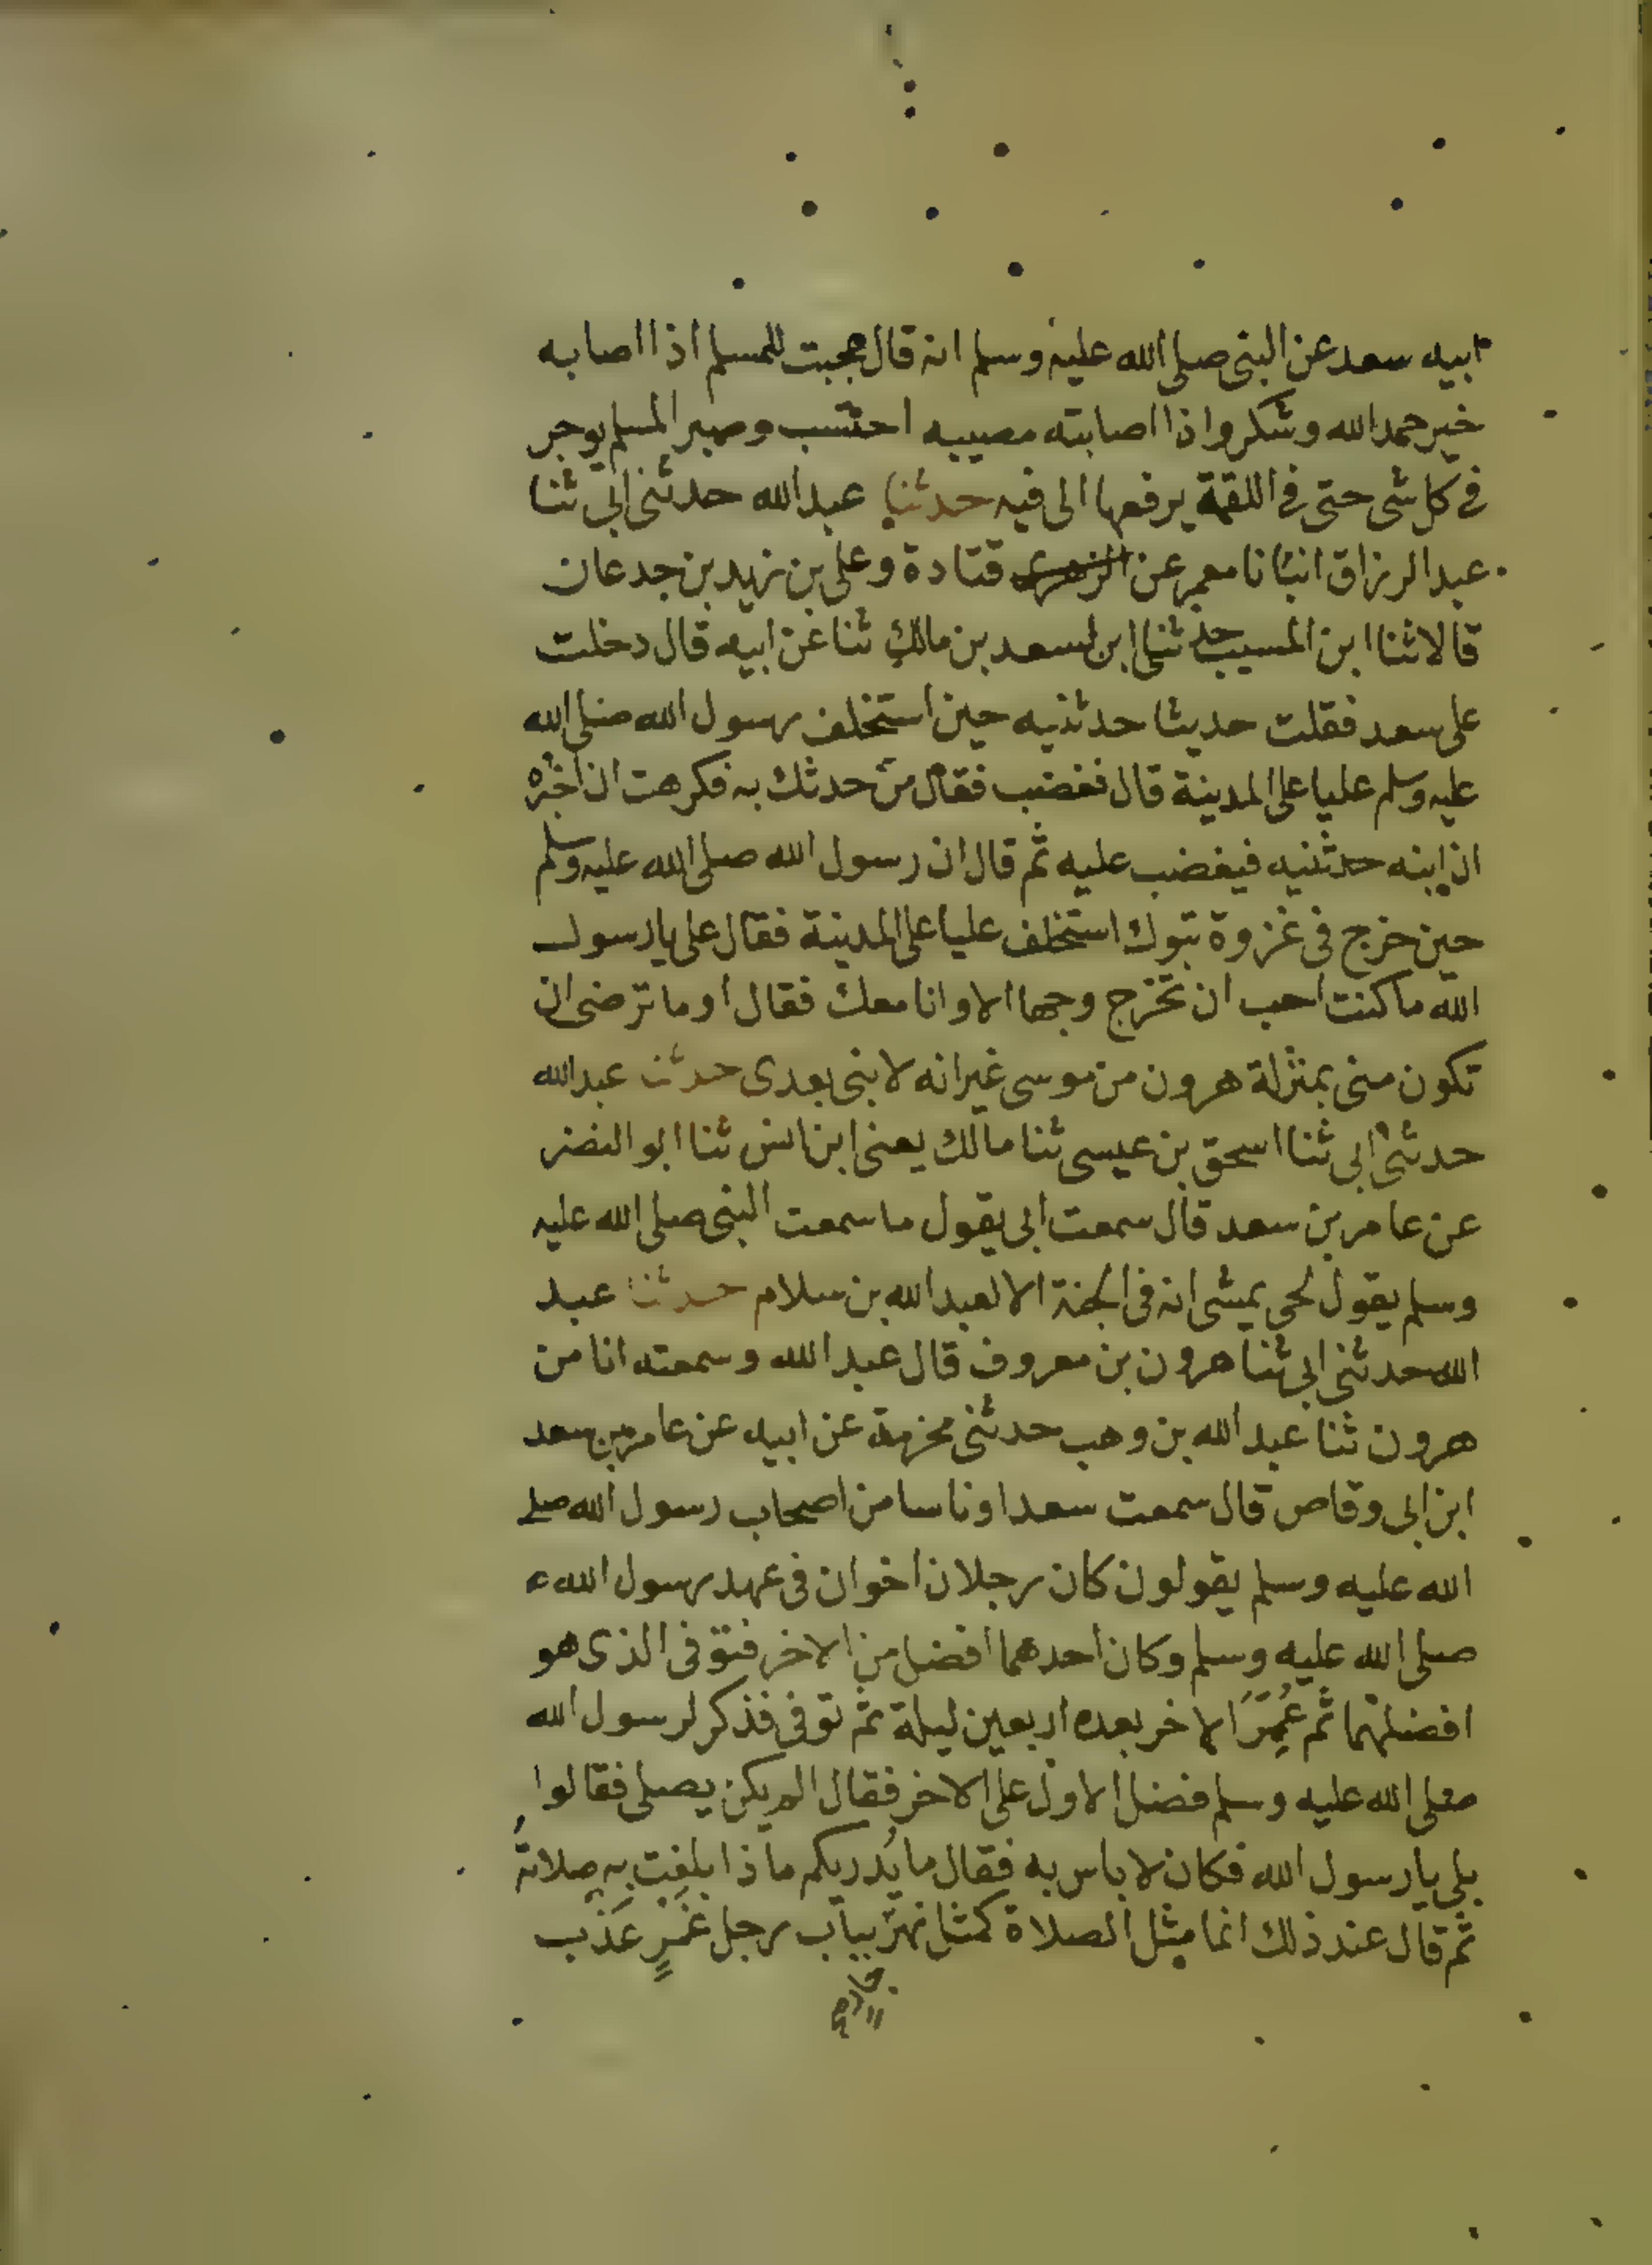 ابيه سعد عن النبي صلى الله عليه وسلم انه قال عجبت للمسلم اذا اصابه
خير حمد الله وشكر واذا اصابته مصيبه احتسب وصبر المسلم يوجر
في كل شى حتى في اللقمة يرفعها الى فيه حدثنا عبد الله حدثنى ابي ثنا
عبد الرزاق انبانا معمر عن الزهرى قتادة وعلى بن زيد بن جدعان
قالا ثنا ابن المسيب حدثنى ابن لسعد بن مالك ثنا عن ابيه قال دخلت
على سعد فقلت حديثا حدثنيه حين استخلف رسول الله صلى الله
عليه وسلم عليا على المدينة قال فغضب فقال من حدثك به فكرهت ان اخبره
ان ابنه حدثنيه فيغضب عليه ثم قال ان رسول الله صلى الله عليه وسلم
حين خرج فى غزوة تبوك استخلف عليا على المدينة فقال على يا رسول
الله ما كنت احب ان تخرج وجها الا وانا معك فقال اوما ترضى ان
تكون منى بمنزلة هرون من موسى غير انه لا نبى بعدى حدثنا عبد الله
حدثنى ابى ثنا اسحق بن عيسى ثنا مالك يعنى ابن انس ثنا ابو النضر
عن عامر بن سعد قال سمعت ابى يقول ما سمعت النبى صلى الله عليه
وسلم يقول لحى يمشى انه فى الجنة الا لعبد الله بن سلام حدثنا عبد
الله حدثنى ابى ثنا هرون بن معروف قال عبد الله وسمعته انا من
هرون ثنا عبد الله بن وهب حدثنى مخرمة عن ابيه عن عامر بن سعد
ابن ابى وقاص قال سمعت سعدا وناسا من اصحاب رسول الله صلى
الله عليه وسلم يقولون كان رجلان اخوان فى عهد رسول الله
صلى الله عليه وسلم وكان احدهما افضل من الاخر فتوفى الذى هو
افضلهما ثم عُمِّرَ الاخر بعده اربعين ليلة ثم توفى فذكر لرسول الله
صلى الله عليه وسلم فضل الاول على الاخر فقال الم يكن يصلى فقالوا
بلى يا رسول الله فكان لا باس به فقال ما يُدريكم ماذا بلغت به صلاتهُ
ثم قال عند ذلك انما مثل الصلاة كمثل نهر بباب رجل غَمْرٍ عَذْب